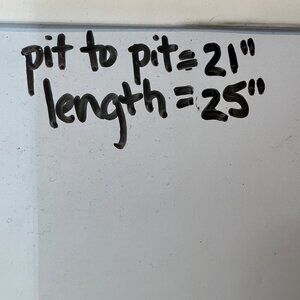 pit to pit = 21"
length = 25"